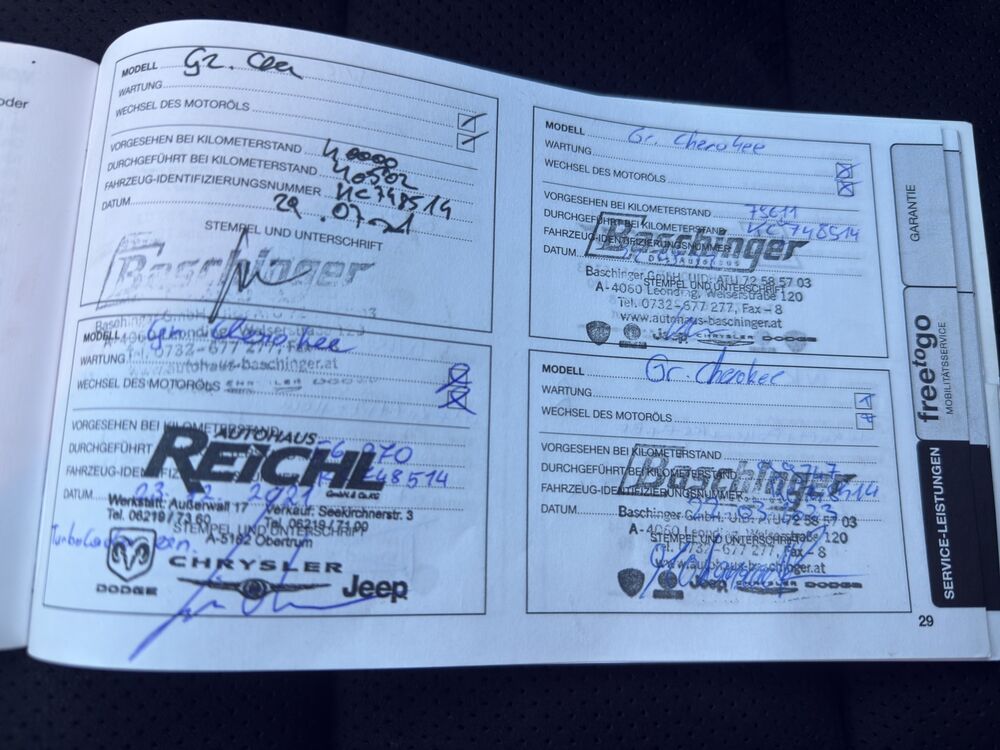 oder
MODELL Gr. Che
WARTUNG
WECHSEL DES MOTORÖLS
VORGESEHEN BEI KILOMETERSTAND 40000
DURCHGEFÜHRT BEI KILOMETERSTAND 40502
FAHRZEUG-IDENTIFIZIERUNGSNUMMER KC748514
DATUM 29.07.21
STEMPEL UND UNTERSCHRIFT
Baschinger
Baschinger GmbH
4060 Leonding, Welserstraße 120
Tel. 0732-677 277, Fax
autohaus-baschinger.at
MODELL Gr. Cherokee
WARTUNG
WECHSEL DES MOTORÖLS
VORGESEHEN BEI KILOMETERSTAND
DURCHGEFÜHRT 56.070
FAHRZEUG-IDENTIFIZ 748514
DATUM 23.12.2021
AUTOHAUS
REICHL
GmbH & Co.KG
Werkstatt: Außerwall 17 Verkauf: Seekirchnerstr. 3
Tel. 06219/73 60 Tel. 06219/71 00
STEMPEL UND UNTERSCHRIFT
A-5162 Obertrum
CHRYSLER
DODGE
Jeep
MODELL Gr. Cherokee
WARTUNG
WECHSEL DES MOTORÖLS
VORGESEHEN BEI KILOMETERSTAND 73611
DURCHGEFÜHRT BEI KILOMETERSTAND KC748514
FAHRZEUG-IDENTIFIZIERUNGSNUMMER
DATUM
Baschinger
DAS AUTOHAUS
Baschinger GmbH, UID: ATU 72 58 57 03
STEMPEL UND UNTERSCHRIFT
A-4060 Leonding, Welserstraße 120
Tel. 0732-677 277, Fax - 8
www.autohaus-baschinger.at
Jeep CHRYSLER DODGE
MODELL Gr. Cherokee
WARTUNG
WECHSEL DES MOTORÖLS
VORGESEHEN BEI KILOMETERSTAND
DURCHGEFÜHRT BEI KILOMETERSTAND
FAHRZEUG-IDENTIFIZIERUNGSNUMMER 748514
DATUM 22.03.2023
Baschinger
Baschinger GmbH, UID: ATU 72 58 57 03
A-4060 Leonding, Welserstraße 120
STEMPEL UND UNTERSCHRIFT
Tel. 0732-677 277, Fax - 8
www.autohaus-baschinger.at
Jeep CHRYSLER DODGE
GARANTIE
freetogo
MOBILITÄTSSERVICE
SERVICE-LEISTUNGEN
29